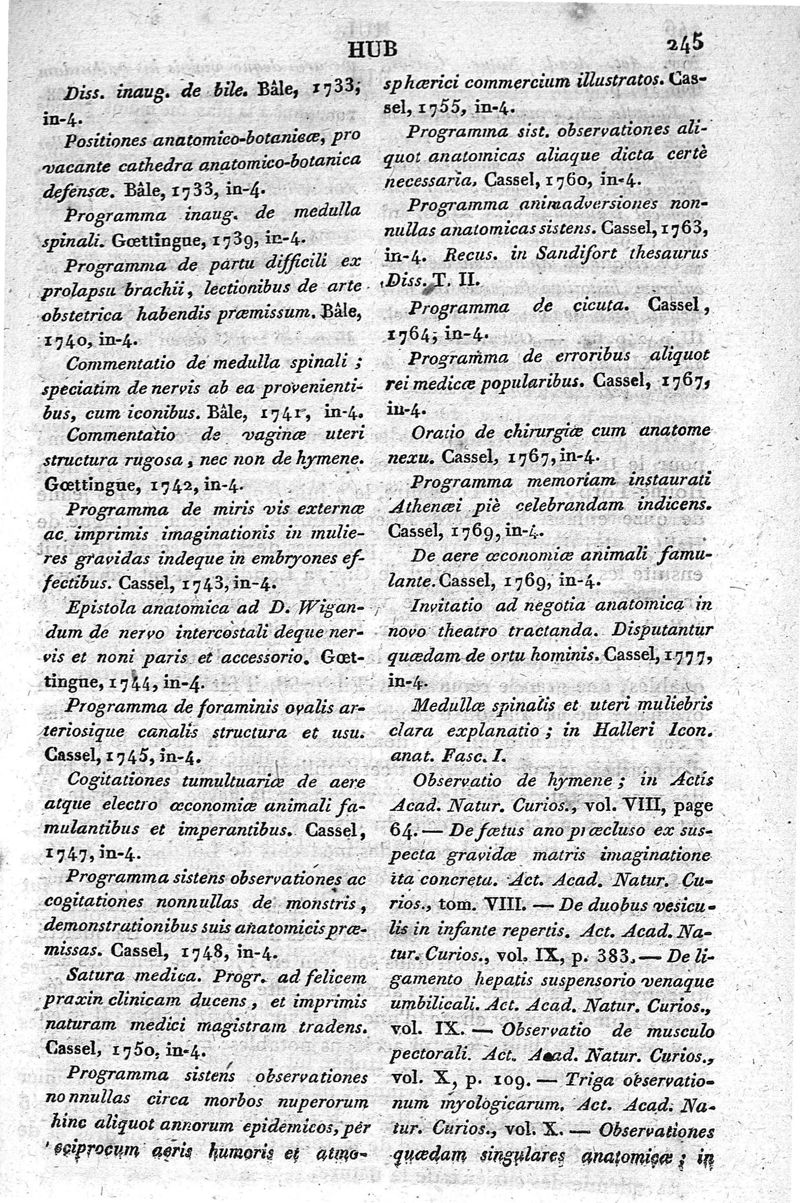 HUB 245
Diss. inaug. de bile. Bâle, 1733,
in-4.
Positiones anatomico-botanicæ, pro
vacante cathedra anatomico-botanica
defensæ. Bâle, 1733, in-4.
Programma inaug. de medulla
spinali. Gœttingue, 1739, in-4.
Programma de partu difficili ex
prolapsu brachii, lectionibus de arte
obstetrica habendis præmissum. Bâle,
1740, in-4.
Commentatio de medulla spinali ;
speciatim de nervis ab ea provenienti-
bus, cum iconibus. Bâle, 1741, in-4.
Commentatio de vaginæ uteri
structura rugosa, nec non de hymene.
Gœttingue, 1742, in-4.
Programma de miris vis externæ
ac imprimis imaginationis in mulie-
res gravidas indeque in embryones ef-
fectibus. Cassel, 1743, in-4.
Epistola anatomica ad D. Wigan-
dum de nervo intercostali deque ner-
vis et noni paris et accessorio. Gœt-
tingue, 1744, in-4.
Programma de foraminis ovalis ar-
teriosique canalis structura et usu.
Cassel, 1745, in-4.
Cogitationes tumultuariæ de aere
atque electro œconomiæ animali fa-
mulantibus et imperantibus. Cassel,
1747, in-4.
Programma sistens observationes ac
cogitationes nonnullas de monstris,
demonstrationibus suis anatomicis præ-
missas. Cassel, 1748, in-4.
Satura medica. Progr. ad felicem
praxin clinicam ducens, et imprimis
naturam medici magistram tradens.
Cassel, 1750, in-4.
Programma sistens observationes
nonnullas circa morbos nuperorum
hinc aliquot annorum epidemicos, per
reciprocum aeris humoris et atmo-
sphærici commercium illustratos. Cas-
sel, 1755, in-4.
Programma sist. observationes ali-
quot anatomicas aliaque dicta certè
necessaria. Cassel, 1760, in-4.
Programma animadversiones non-
nullas anatomicas sistens. Cassel, 1763,
in-4. Recus. in Sandifort thesaurus
Diss. T. II.
Programma de cicuta. Cassel,
1764, in-4.
Programma de erroribus aliquot
rei medicæ popularibus. Cassel, 1767,
in-4.
Oratio de chirurgiæ cum anatome
nexu. Cassel, 1767, in-4.
Programma memoriam instaurati
Athenæi piè celebrandam indicens.
Cassel, 1769, in-4.
De aere œconomiæ animali famu-
lante. Cassel, 1769, in-4.
Invitatio ad negotia anatomica in
novo theatro tractanda. Disputantur
quædam de ortu hominis. Cassel, 1777,
in-4.
Medullæ spinalis et uteri muliebris
clara explanatio ; in Halleri Icon.
anat. Fasc. I.
Observatio de hymene ; in Actis
Acad. Natur. Curios., vol. VIII, page
64. — De fœtus ano præcluso ex sus-
pecta gravidæ matris imaginatione
ita concreta. Act. Acad. Natur. Cu-
rios., tom. VIII. — De duobus vesicu-
lis in infante repertis. Act. Acad. Na-
tur. Curios., vol. IX, p. 383. — De li-
gamento hepatis suspensorio venaque
umbilicali. Act. Acad. Natur. Curios.,
vol. IX. — Observatio de musculo
pectorali. Act. Acad. Natur. Curios.,
vol. X, p. 109. — Triga observatio-
num myologicarum. Act. Acad. Na-
tur. Curios., vol. X. — Observationes
quædam singulares anatomicæ ; in